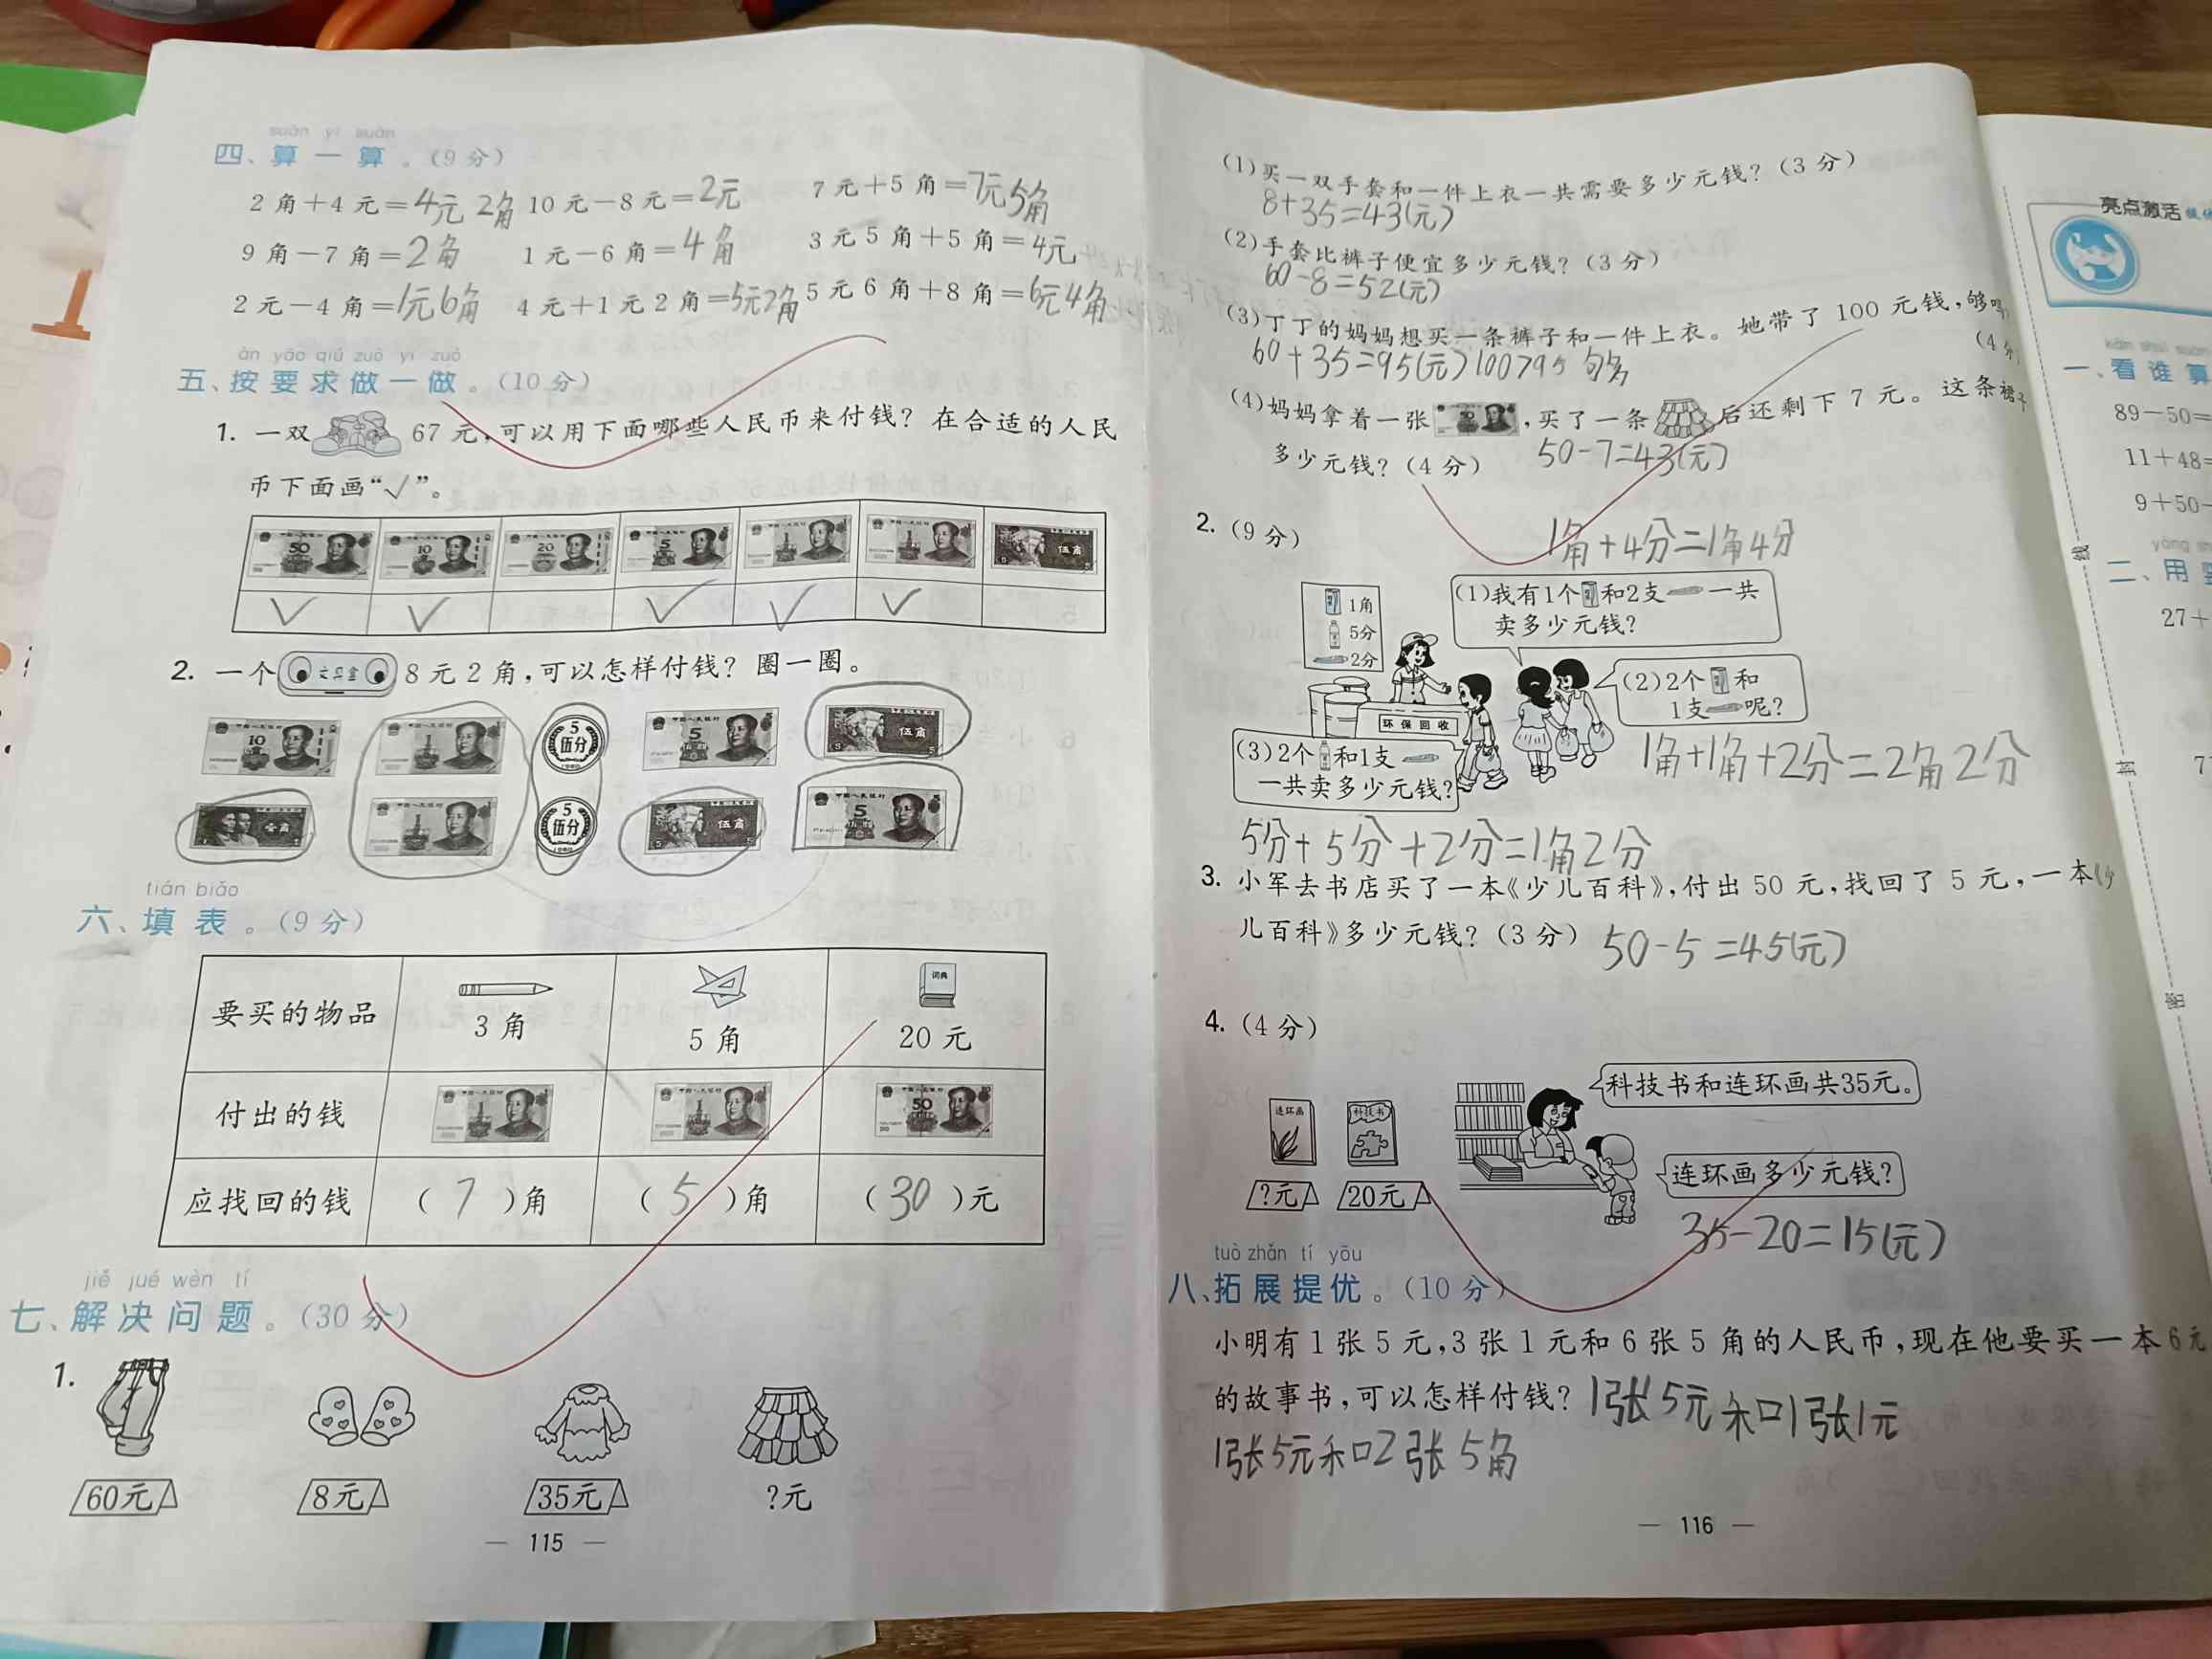 suàn yi suàn
四、算一算。(9分)
2角+4元=4元2角 10元-8元=2元 7元+5角=7元5角
9角-7角=2角 1元-6角=4角 3元5角+5角=4元
2元-4角=1元6角 4元+1元2角=5元2角 5元6角+8角=6元4角
àn yāo qiú zuò yi zuò
五、按要求做一做。(10分)
1. 一双 67元,可以用下面哪些人民币来付钱?在合适的人民
币下面画“√”。
50 10 20 5 伍角
√ √ √ √ √
2. 一个 文具盒 8元2角,可以怎样付钱?圈一圈。
10 5 伍分 5 伍角
壹角 5 伍分 伍角 5
tián biǎo
六、填表。(9分)
要买的物品 3角 5角 词典 20元
付出的钱 50
应找回的钱 (7)角 (5)角 (30)元
jiě jué wèn tí
七、解决问题。(30分)
1.
60元 8元 35元 ?元
— 115 —
(1)买一双手套和一件上衣一共需要多少元钱?(3分)
8+35=43(元)
(2)手套比裤子便宜多少元钱?(3分)
60-8=52(元)
(3)丁丁的妈妈想买一条裤子和一件上衣。她带了100元钱,够吗
(4分
60+35=95(元)100>95 够
(4)妈妈拿着一张 50 ,买了一条 后还剩下7元。这条裙子
多少元钱?(4分) 50-7=43(元)
2. (9分) 1角+4分=1角4分
1角
5分
2分
(1)我有1个 和2支 一共
卖多少元钱?
(2)2个 和
1支 呢?
环保回收
1角+1角+2分=2角2分
(3)2个 和1支
一共卖多少元钱?
5分+5分+2分=1角2分
3. 小军去书店买了一本《少儿百科》,付出50元,找回了5元,一本《少
儿百科》多少元钱?(3分) 50-5=45(元)
4. (4分)
科技书和连环画共35元。
连环画 科技书
连环画多少元钱?
?元 20元
35-20=15(元)
tuò zhǎn tí yōu
八、拓展提优。(10分)
小明有1张5元,3张1元和6张5角的人民币,现在他要买一本6元
的故事书,可以怎样付钱?1张5元和1张1元
1张5元和2张5角
— 116 —
亮点激活
一、看谁算
89-50=
11+48=
9+50-
二、用
27+
线
封
密